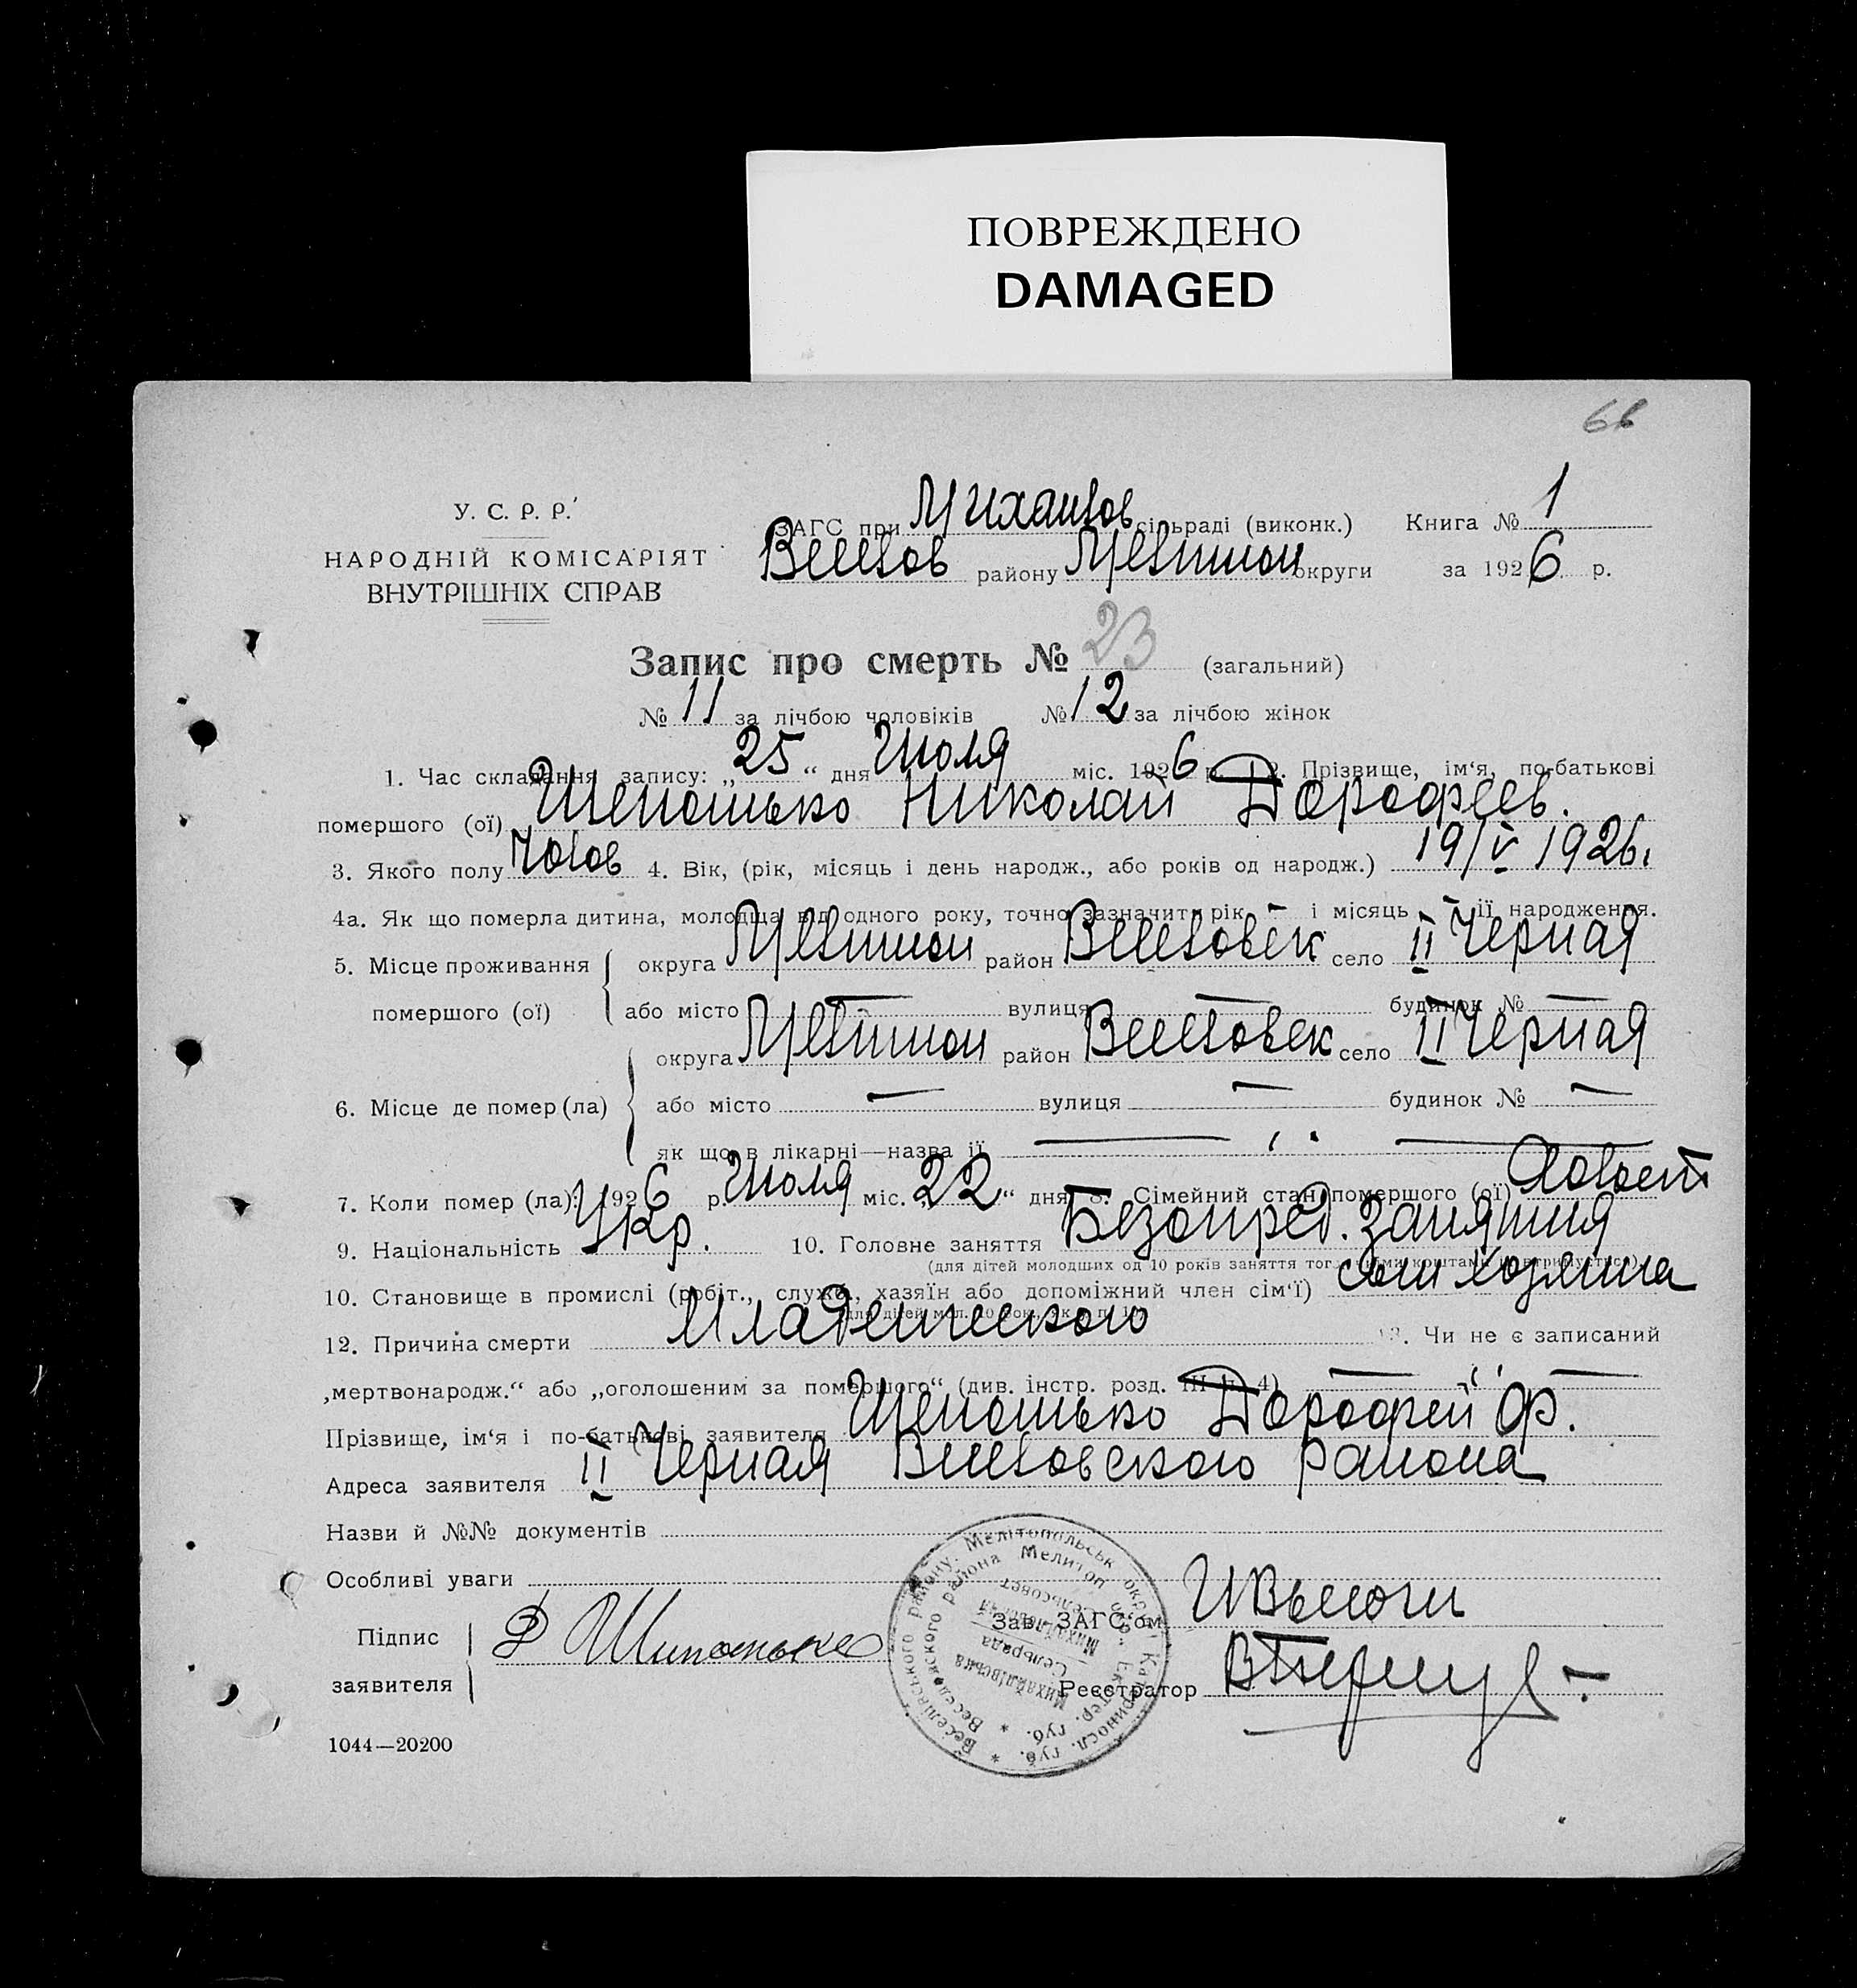 ПОВРЕЖДЕНО
DAMAGED
У. С. Р. Р.
НАРОДНІЙ КОМІСАРІЯТ
ВНУТРІШНІХ СПРАВ
ЗАГС при Михайлов сільраді (виконк.) Книга № 1
Веселов району Мелитоп округи за 1926 р.
Запис про смерть № 23 (загальний)
№ 11 за лічбою чоловіків № 12 за лічбою жінок
1. Час складання запису: „25“ дня Июля міс. 1926 р. 2. Прізвище, ім‘я, по-батькові
помершого (ої) Николай Дорофеев.
3. Якого полу Чолов 4. Вік, (рік, місяць і день народж., або років од народж.) 19/V 1926.
4а. Як що померла дитина, молодща від одного року, точно зазначити рік – і місяць – її народження.
5. Місце проживання округа Мелитоп район Веселовск село II Черная
помершого (ої) або місто — вулиця — будинок № —
округа Мелитоп район Веселовск село II Черная
6. Місце де помер (ла) або місто — вулиця — будинок № —
як що в лікарні—назва її —
7. Коли помер (ла): 1926 р. Июля міс. „22“ дня 8. Сімейний стан помершого (ої) Холост
9. Національність Укр. 10. Головне заняття Безопред. занятия
(для дітей молодших од 10 років заняття того, чиїми коштами він утримується)
10. Становище в промислі (робіт., служб., хазяїн або допоміжний член сім‘ї) сын хозяина
12. Причина смерти Младенческого 13. Чи не є записаний
„мертвонародж.“ або „оголошеним за помершого“ (див. інстр. розд. III п. 4) —
Прізвище, ім‘я і по-батькові заявителя Дорофей Ф.
Адреса заявителя II Черная Веселовского района
Назви й №№ документів
Особливі уваги
Підпис
заявителя
Зав. ЗАГС‘ом
Реєстратор
Веселівського району. Мелітопольськ округи Катериносл. губ.
Веселовского района Мелитоп. окр. Екатер. губ.
Михайлівська
Сельрада
Михайловский
Сельсовет
1044—20200